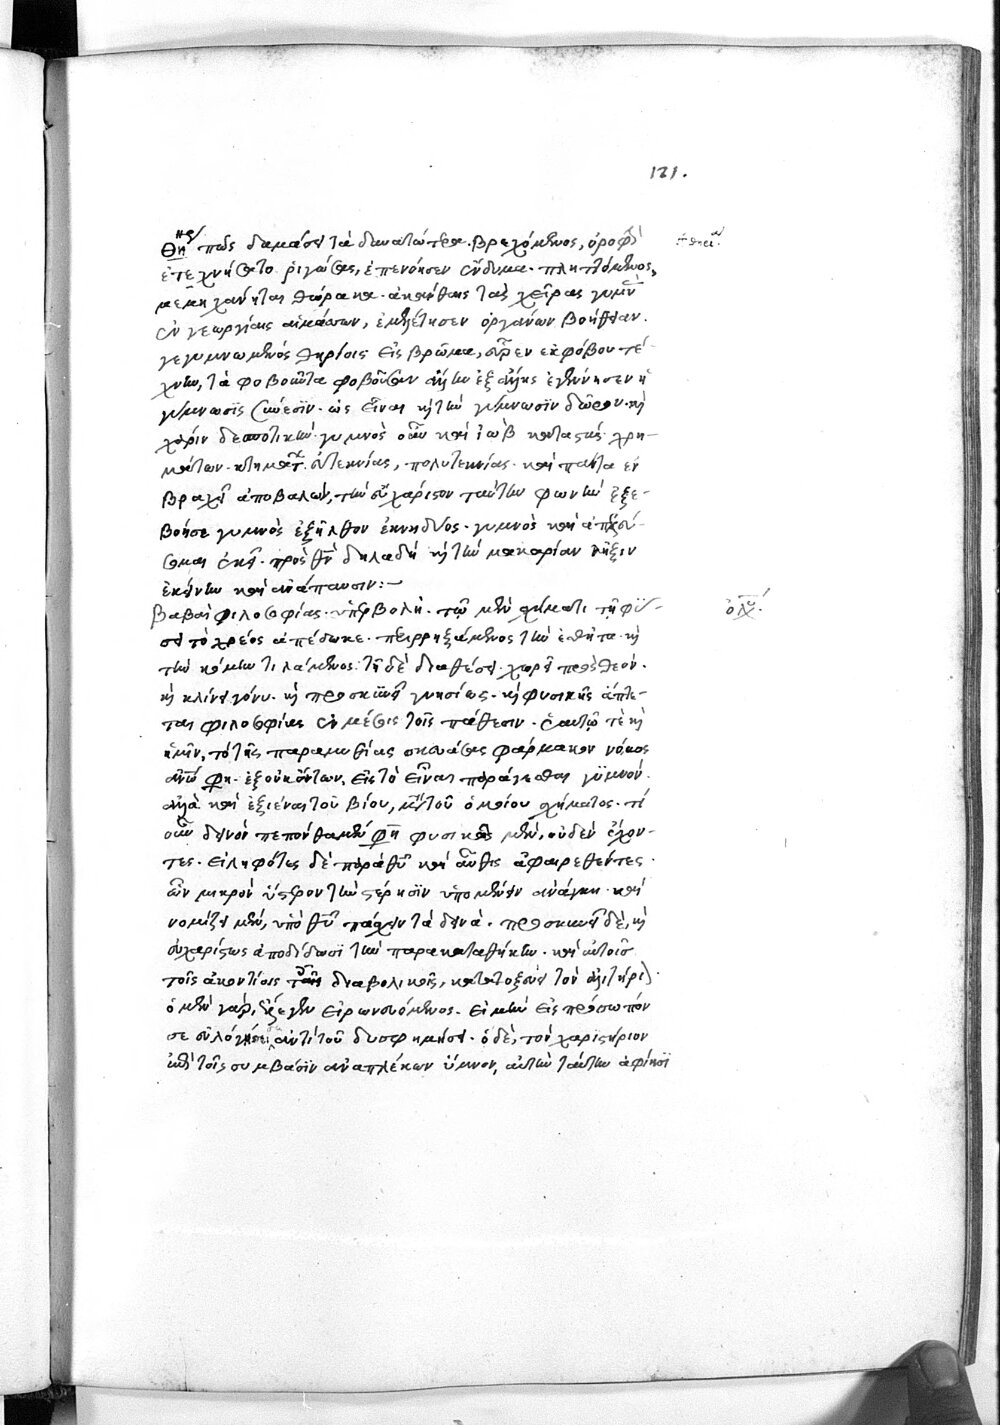 121.
πῶς δαμάσει τὰ δυνατώτερα. βρεχόμενος, ὀροφὴν
ἐτεχνήσατο. ῥιγώσας, ἐπενόησεν ἔνδυμα. πληττόμενος,
μεμηχάνηται θώρακα. ἀκάνθαις τὰς χεῖρας γυμν
ἐν γεωργίαις αἱμάσσων, ἐμελέτησεν ὀργάνων βοήθειαν.
γεγυμνωμένος θηρίοις εἰς βρῶμα, εὗρεν ἐκ φόβου τέ-
χνην, τὰ φοβοῦντα φοβοῦσαν
γύμνωσις . ὡς εἶναι κὴ τὴν γύμνωσιν δῶρον. κὴ
χάριν δεσποτικήν. γυμνὸς οὖν καὶ ἰὼβ καταστάς. χρη-
μάτων. κτημάτ. εὐτεκνίας, πολυτεκνίας. καὶ πάντα ἐν
βραχεῖ ἀποβαλών, τὴν εὐχάριστον ταύτην φωνὴν ἐξε-
βόησε γυμνὸς ἐξῆλθον ἐκ κοιλίας. γυμνὸς καὶ ἀπελεύ-
σομαι ἐκεῖ. πρὸς θν δηλαδὴ κὴ τὴν μακαρίαν λῆξιν
ἐκείνην καὶ ἀνάπαυσιν:—
βαβαὶ φιλοσοφίας. ὑπερβολή. τῷ μὲν σχήματι τῇ φύ-
σει τὸ χρέος ἀπέδωκε. περιρρηξάμενος τὴν ἐσθῆτα. κὴ
τὴν κόμην τιλάμενος. τῇ δὲ διαθέσει. χωρεῖ πρὸς θεόν.
κὴ κλίνει γόνυ. κὴ προσκυνεῖ γνησίως. κὴ φυσικῆς ἅπτε-
ται φιλοσοφίας ἐν μέσοις τοῖς πάθεσιν. ἑαυτῷ τὲ κὴ
ἡμῖν, τὸ τῆς παραμυθίας σκευάσας φάρμακον νόμος
φη. ἐξ οὐκ ὄντων, εἰς τὸ εἶναι παράγεσθαι γυμνόν.
ἀλλὰ καὶ ἐξιέναι τοῦ βίου, μετὰ τοῦ ὁμοίου σχήματος. τί
οὖν δεινὸν πεπόνθαμεν φη φυσικῶς μὲν, οὐδὲν ἔχον-
τες. εἰληφότες δὲ παρὰ θυ καὶ αὖθις ἀφαιρεθέντες.
ὧν μικρὸν ὕστερον τὴν στέρησιν ὑπομένειν ἀνάγκη. καὶ
νομίζει μὲν, ὑπὸ θυ πάσχειν τὰ δεινά. προσκυνεῖ δὲ, κὴ
εὐχαρίστως ἀποδίδωσι τὴν παρακαταθήκην. καὶ αὐτοῖς
τοῖς ἀκοντίοις τοῖς διαβολικοῖς, κατατοξεύει τὸν ἀλιτήρι.
ὁ μὲν γὰρ, ἔλεγεν εἰρωνευόμενος. εἰ μὴν εἰς πρόσωπόν
σε εὐλογήσει ἀντὶ τοῦ δυσφημήσει. ὁ δὲ, τὸν χαριστήριον
ἐπὶ τοῖς συμβᾶσιν ἀναπλέκων ὕμνον, αὐτὴν ταύτην ἀφίησι